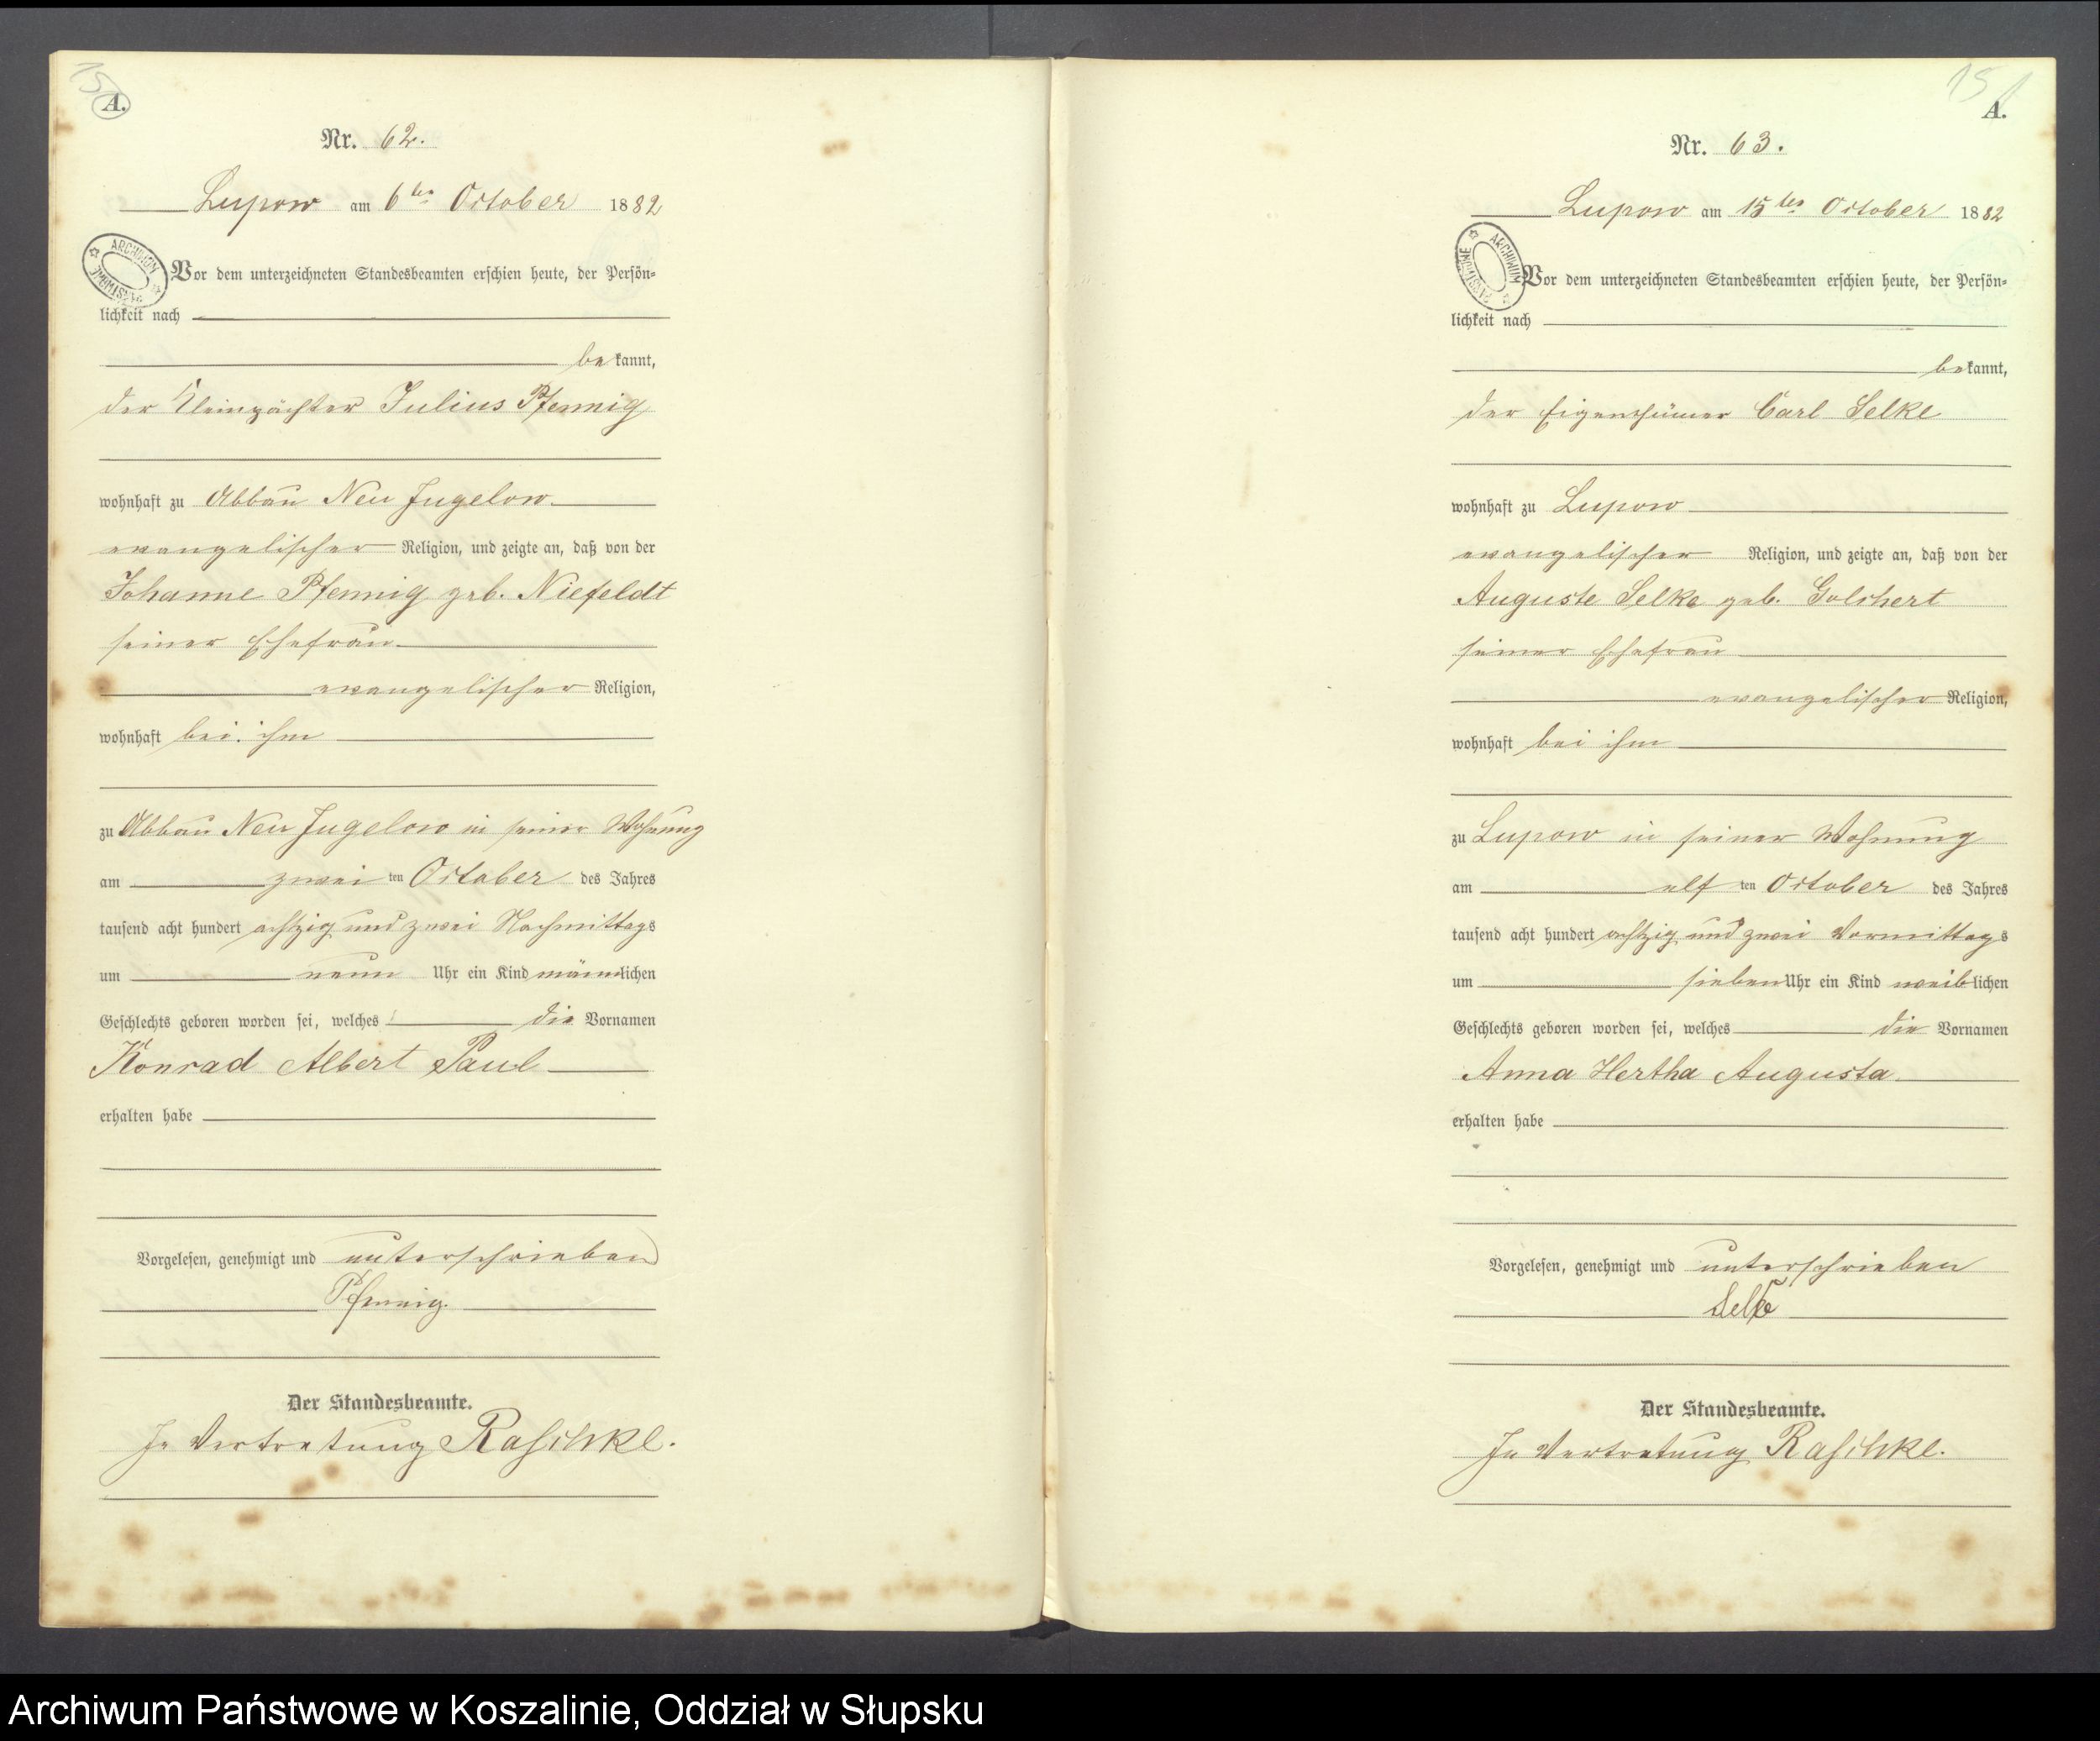 A.
Nr. 62.
Lupow am 6ten October 1882
ARCHIWUM PAŃSTWOWE
Vor dem unterzeichneten Standesbeamten erschien heute, der Persön=
lichkeit nach
bekannt,
der Kleinpächter Julius Pfennig
wohnhaft zu Abbau Neu Jugelow
evangelischer Religion, und zeigte an, daß von der
Johanne Pfennig geb. Niefeldt
seiner Ehefrau
evangelischer Religion,
wohnhaft bei ihm
zu Abbau Neu Jugelow in seiner Wohnung
am zwei ten October des Jahres
tausend acht hundert achtzig und zwei Nachmittags
um neun Uhr ein Kind männlichen
Geschlechts geboren worden sei, welches die Vornamen
Konrad Albert Paul
erhalten habe
Vorgelesen, genehmigt und unterschrieben
Pfennig.
Der Standesbeamte.
In Vertretung Raschke.
151
A.
Nr. 63.
Lupow am 15ten October 1882
ARCHIWUM PAŃSTWOWE
Vor dem unterzeichneten Standesbeamten erschien heute, der Persön=
lichkeit nach
bekannt,
der Eigenthümer Carl Selke
wohnhaft zu Lupow
evangelischer Religion, und zeigte an, daß von der
Auguste Selke geb. Golchert
seiner Ehefrau
evangelischer Religion,
wohnhaft bei ihm
zu Lupow in seiner Wohnung
am elf ten October des Jahres
tausend acht hundert achtzig und zwei Vormittags
um sieben Uhr ein Kind weiblichen
Geschlechts geboren worden sei, welches die Vornamen
Anna Hertha Augusta
erhalten habe
Vorgelesen, genehmigt und unterschrieben
Selke
Der Standesbeamte.
In Vertretung Raschke.
Archiwum Państwowe w Koszalinie, Oddział w Słupsku